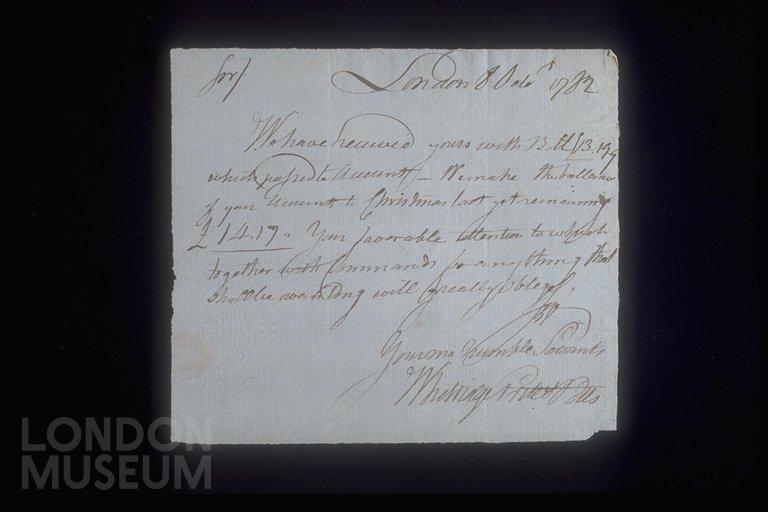 Sir/ London 8 Octr 1782
We have received yours with Bill £13.19
which passed to Account – We make the ballance
of your Account to Christmas last yet remaining
£14.17 „ Your favorable attention to which
together with Commands for any thing that
shall be wanting will greatly oblige,
Sir
Your mo humble Servants
LONDON
MUSEUM